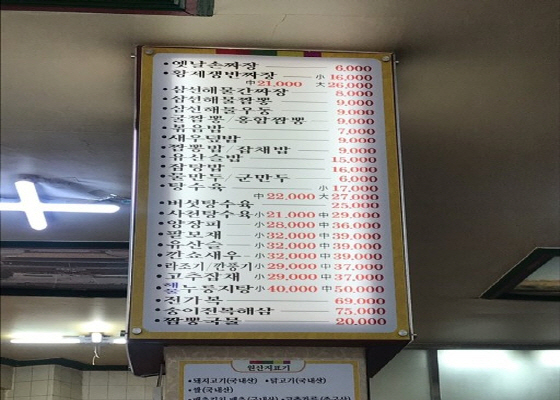 •옛날손짜장 6,000
•황제쟁반짜장 小 16,000
中 21,000 大 26,000
•삼선해물간짜장 8,000
•삼선해물짬뽕 9,000
•삼선해물우동 9,000
•굴짬뽕/홍합짬뽕 9,000
•볶음밥 7,000
•새우덮밥 9,000
•짬뽕밥/잡채밥 9,000
•유산슬밥 15,000
•잡탕밥 16,000
•물만두/군만두 6,000
•탕수육 小 17,000
中 22,000 大 27,000
•버섯탕수육 25,000
•사천탕수육 小 21,000 中 29,000
•양장피 小 28,000 中 36,000
•팔보채 小 32,000 中 39,000
•유산슬 小 32,000 中 39,000
•깐쇼새우 小 32,000 中 39,000
•라조기/깐풍기 小 29,000 中 37,000
•고추잡채 小 29,000 中 37,000
•해물누룽지탕 小 40,000 中 50,000
•전가복 69,000
•송이전복해삼 75,000
•짬뽕국물 20,000
원산지표기
•돼지고기(국내산) •닭고기(국내산)
•쌀(국내산)